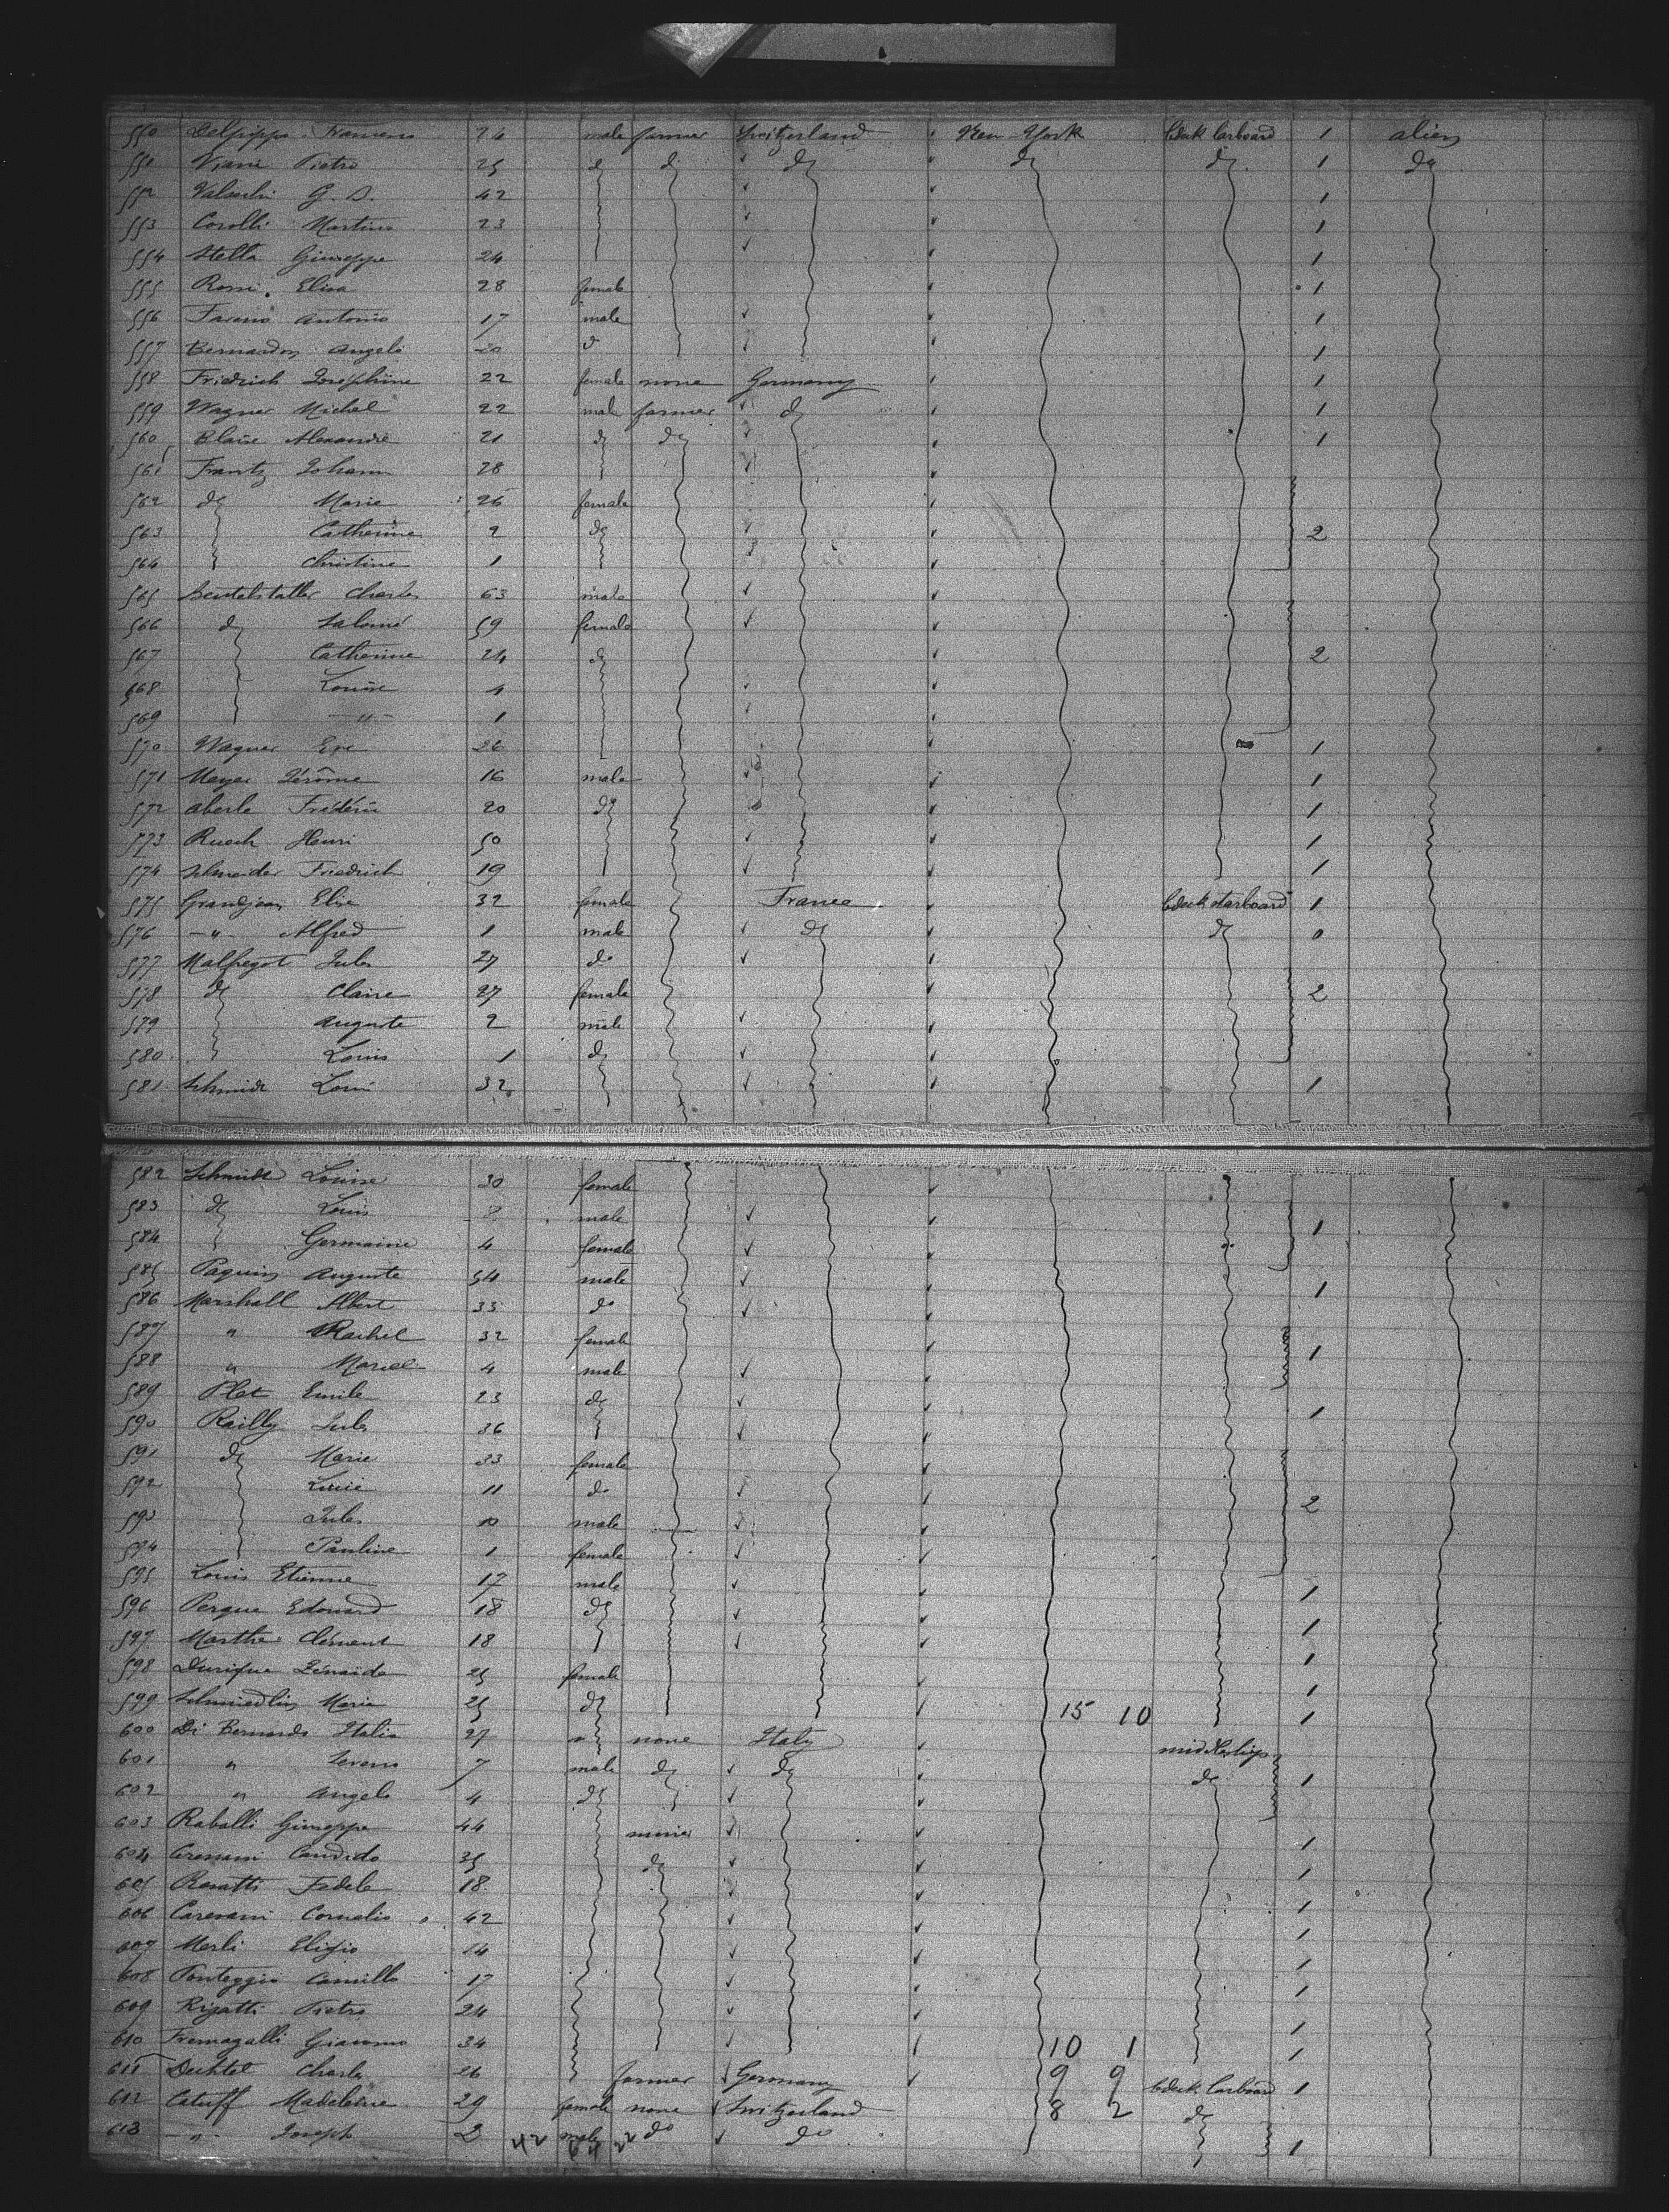 550 Delfrippo Francesco 24 male farmer Switzerland New York bdeck larboard 1 alien
551 Viani Pietro 25 do do do do do 1 do
552 Valsechi G. D. 42 1
553 Corolli Martino 23 1
554 Stella Giuseppe 24 1
555 Rossi Elisa 28 female 1
556 Antonio 17 male 1
557 Bernardon Angelo 20 do 1
558 Friedrich Josephine 22 female none Germany 1
559 Wagner Michel 22 male farmer do 1
560 Blaise Alexandre 21 do do 1
561 Frantz Johann 28
562 do Marie 26 female
563 Catherine 2 do 2
564 Christine 1
565 Charles 63 male
566 do Salomé 59 female
567 Catherine 24 do 2
568 Louise 4
569 -"- 1
570 Wagner Eve 26 1
571 Meyer Jérôme 16 male 1
572 Aberle Frédéric 20 do 1
573 Ruech Henri 50 1
574 Schneider Friedrich 19 1
575 Grandjean Elise 32 female France bdeck starboard 1
576 -"- Alfred 1 male do do 0
577 Malfregot Jules 27 do
578 do Claire 27 female 2
579 Auguste 2 male
580 Louis 1 do
581 Schmidt Louis 32 1
582 Schmidt Louise 30 female
583 do Louis 8 male 1
584 Germaine 4 female
585 Paquin Auguste 54 male 1
586 Marshall Albert 33 do
587 " Rachel 32 female
588 " Marcel 4 male 1
589 Plet Emile 23 do 1
590 Railly Jules 36
591 do Marie 33 female
592 Lucie 11 do 2
593 Jules 10 male
594 Pauline 1 female
595 Louis Etienne 17 male 1
596 Perque Edouard 18 do 1
597 Marthe Clément 18 1
598 Zénaide 25 female 1
599 Schmiedlin Marie 25 do 15 10 1
600 Di Bernardo Italia 27 " none Italy middleships
601 " 7 male do do do 1
602 " Angelo 4 do
603 Raballi Giuseppe 44 miner 1
604 Candido 35 do 1
605 Rosatti Fedele 18 1
606 Caresani Cornelio 42 1
607 Merli Eligio 24 1
608 Ponteggio Camillo 17 1
609 Rigatti Pietro 24 1
610 Fremagalli Giacomo 34 10 1 1
611 Dechtel Charles 26 farmer Germany 9 9 bdeck larboard 1
612 Catuff Madeleine 29 female none Switzerland 8 2 do
613 -"- Joseph 2 male do do 1
42 64 22